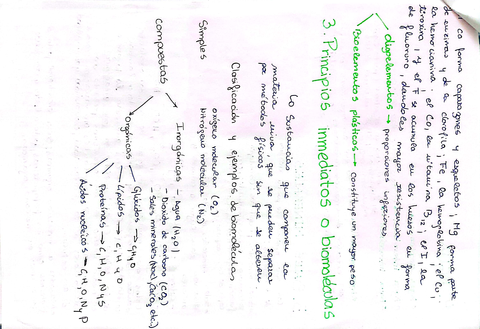 l co forma caparazones y esqueletos; Mg forma parte
de enzimas y de la clorofila; Fe, la hemoglobina; el Cu,
la hemocianina; el Co, la vitamina B12; el I, la
tiroxina; y el F se acumula en los huesos en forma
de fluoruro, dándoles mayor resistencia.
oligoelementos → proporciones inferiores
Bioelementos plásticos → constituye un mayor peso
3. Principios inmediatos o biomoléculas
↳ Sustancias que componen la
materia viva, que se pueden separar
por métodos físicos sin que se alteren
Clasificación y ejemplos de biomoléculas
Simples
oxígeno molecular (O2)
Nitrógeno molecular (N2)
compuestas
Inorgánicas - Agua (H2O)
- Dióxido de carbono (CO2)
- Sales minerales (NaCl, CaCO3, etc.)
Orgánicas
Glúcidos → C, H y O
Lípidos → C, H y O
Proteínas → C, H, O, N y S
Ácidos nucleicos → C, H, O, N y P